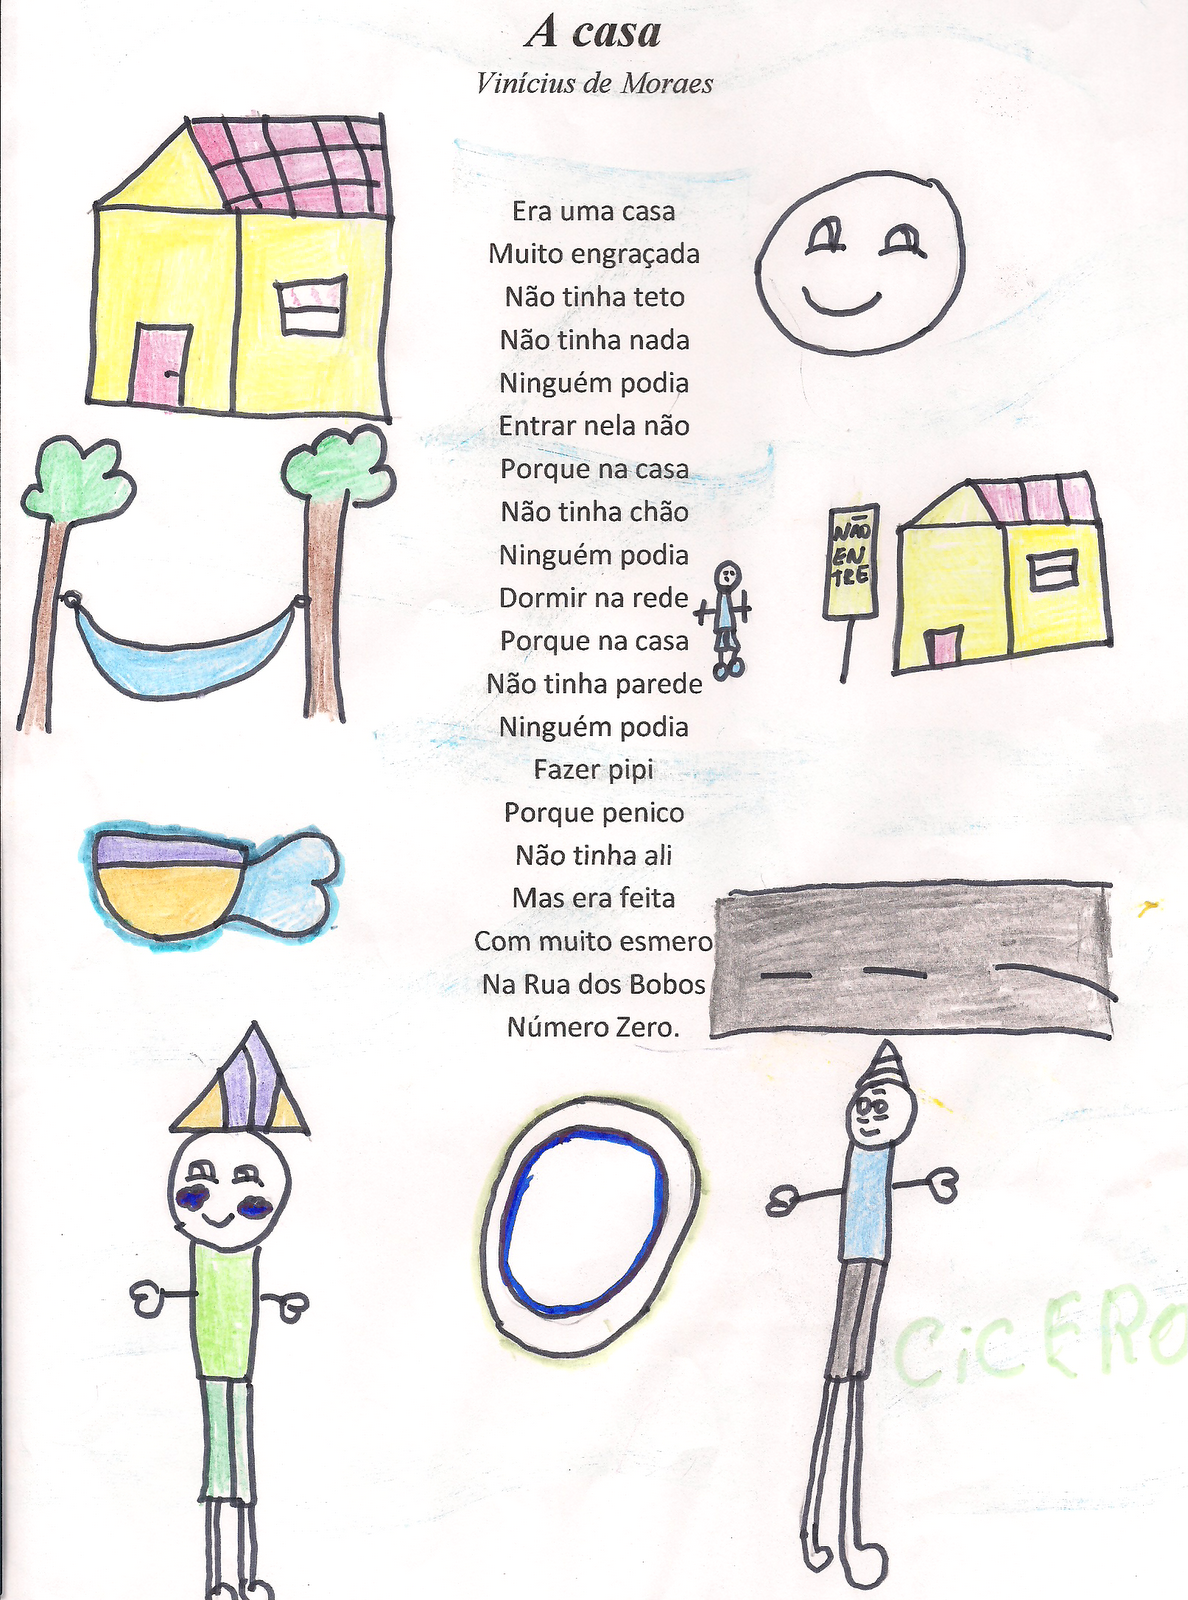 A casa
Vinícius de Moraes
Era uma casa
Muito engraçada
Não tinha teto
Não tinha nada
Ninguém podia
Entrar nela não
Porque na casa
Não tinha chão
Ninguém podia
Dormir na rede
Porque na casa
Não tinha parede
Ninguém podia
Fazer pipi
Porque penico
Não tinha ali
Mas era feita
Com muito esmero
Na Rua dos Bobos
Número Zero.
NÃO
EN
TRE
CiCERO